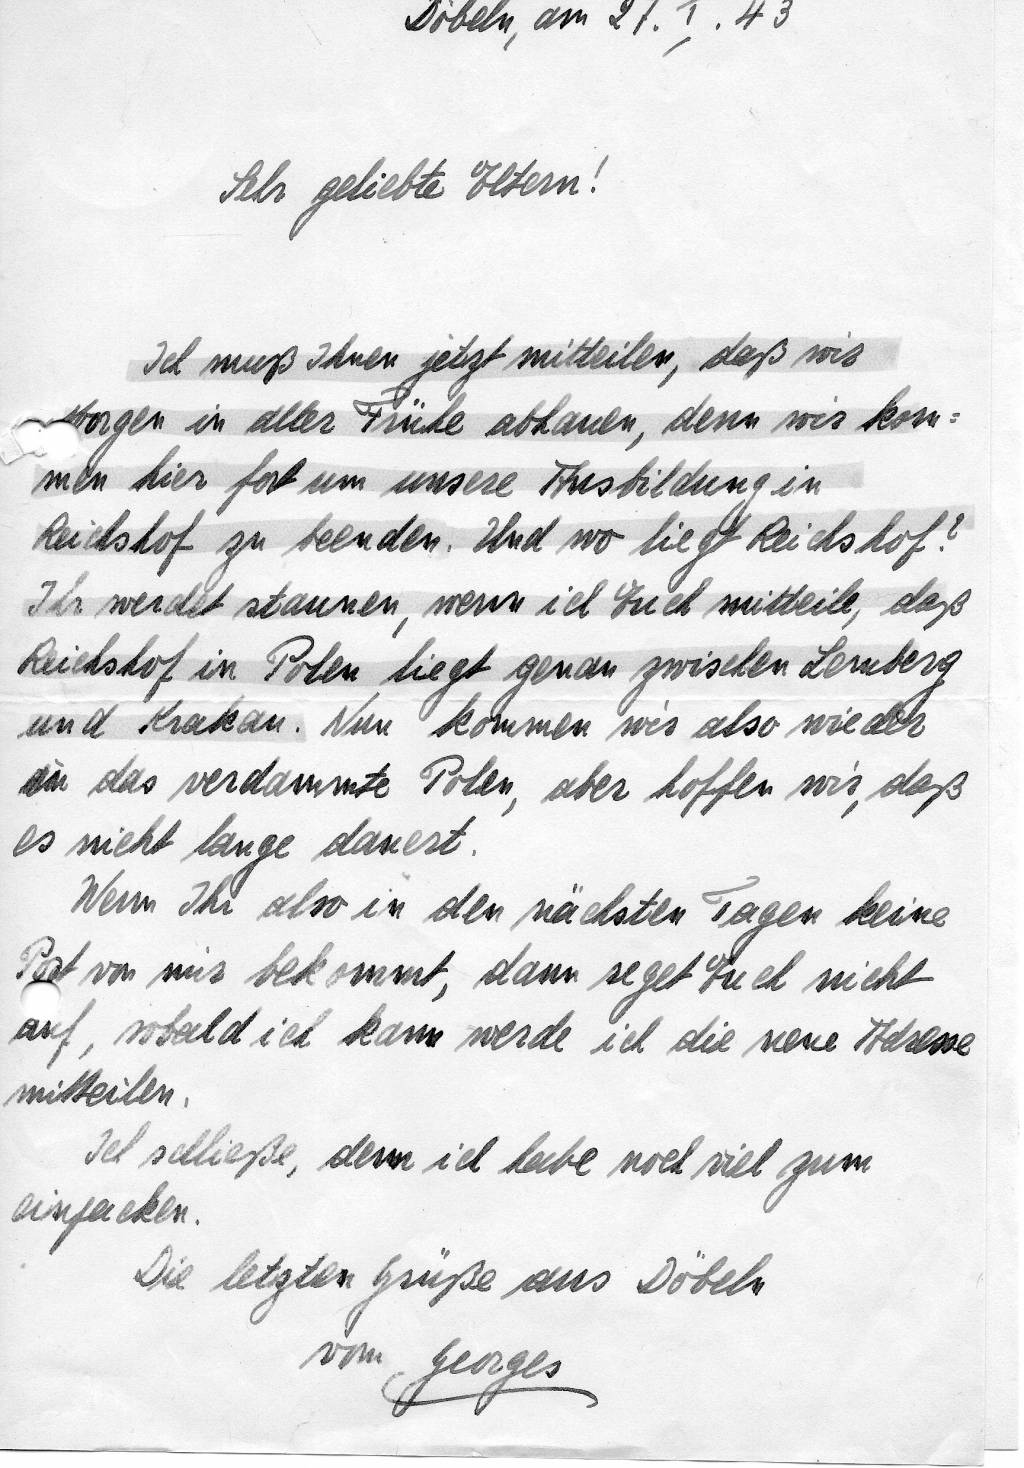 Döbeln, am 21. I. 43
Sehr geliebte Eltern!
Ich muß Ihnen jetzt mitteilen, daß wir
Morgen in aller Frühe abhauen, denn wir kom=
men hier fort um unsere Ausbildung in
Reichshof zu beenden. Und wo liegt Reichshof?
Ihr werdet staunen, wenn ich Euch mitteile, daß
Reichshof in Polen liegt genau zwischen Lemberg
und Krakau. Nun kommen wir also wieder
in das verdammte Polen, aber hoffen wir, daß
es nicht lange dauert.
Wenn Ihr also in den nächsten Tagen keine
Post von mir bekommt, dann reget Euch nicht
auf, sobald ich kann werde ich die neue Adresse
mitteilen.
Ich schließe, denn ich habe noch viel zum
einpacken.
Die letzten Grüße aus Döbeln
vom Georges